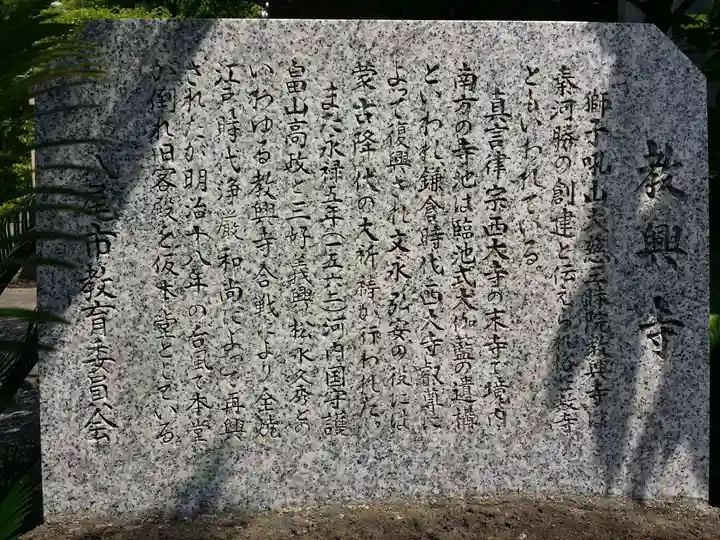 教興寺
獅子吼山大慈三昧院教興寺は
秦河勝の創建と伝えられ俗に秦寺
ともいわれている。
真言律宗西大寺の末寺で境内
南方の寺池は臨池式大伽藍の遺構
といわれ鎌倉時代西大寺叡尊に
よって復興され文永弘安の役には
蒙古降伏の大祈祷が行われた。
また永禄五年(一五六二)河内国守護
畠山高政と三好義興松永久秀との
いわゆる教興寺合戦により全焼
江戸時代浄厳和尚によって再興
されたが明治十八年の台風で本堂
が倒れ旧客殿を仮本堂としている。
八尾市教育委員会